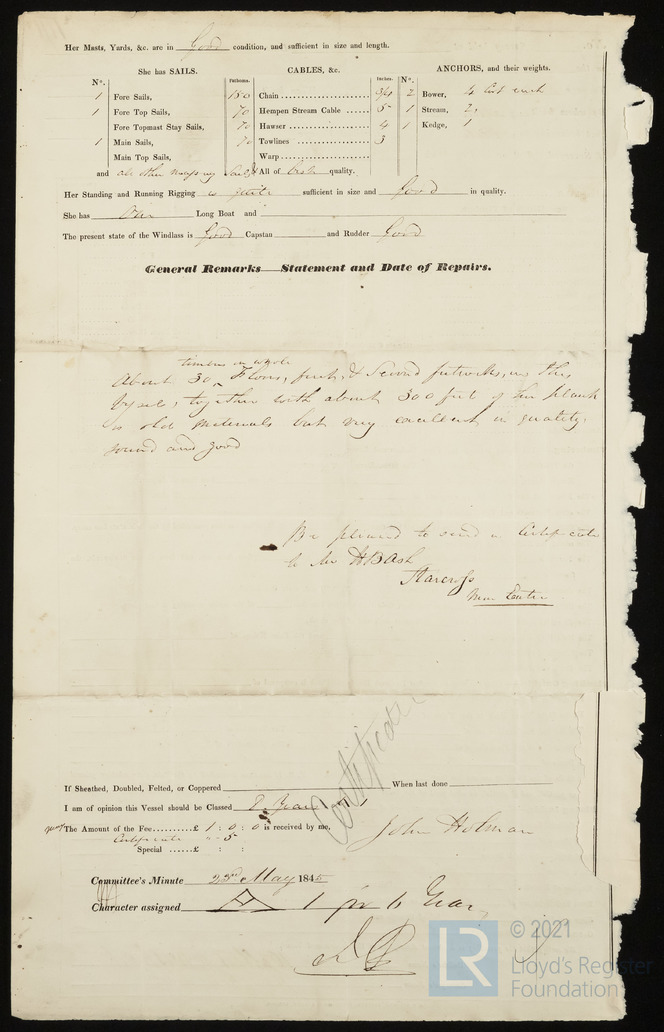 Her Masts, Yards, &c. are in Good condition, and sufficient in size and length.
She has SAILS. CABLES, &c. ANCHORS, and their weights.
No. Fathoms. Inches. No.
1 Fore Sails, 180 Chain 3/4 2 Bower, 4 Cwt each
1 Fore Top Sails, 70 Hempen Stream Cable 5 1 Stream, 2
Fore Topmast Stay Sails, 70 Hawser 4 1 Kedge, 1
1 Main Sails, 70 Towlines 3
Main Top Sails, Warp
and all other necessary Sails All of best quality.
Her Standing and Running Rigging is sufficient in size and Good in quality.
She has One Long Boat and
The present state of the Windlass is Good Capstan and Rudder Good
General Remarks—Statement and Date of Repairs.
timbers in whole
About 30 Floors, first & Second futtocks, in this
Vessel, together with about 300 feet of the plank
is old materials but very excellent in quality,
sound and good
Be pleased to send a Certificate
to Mr Ash
Starcross
Near Exeter
Certificate
If Sheathed, Doubled, Felted, or Coppered When last done
I am of opinion this Vessel should be Classed Years
The Amount of the Fee £ 1 : 0 : 0 is received by me, John Holman
Certificate " 5
Special £ : :
Committee's Minute 23rd May 1845
Character assigned A 1 for 6 Years
LR © 2021
Lloyd's Register
Foundation